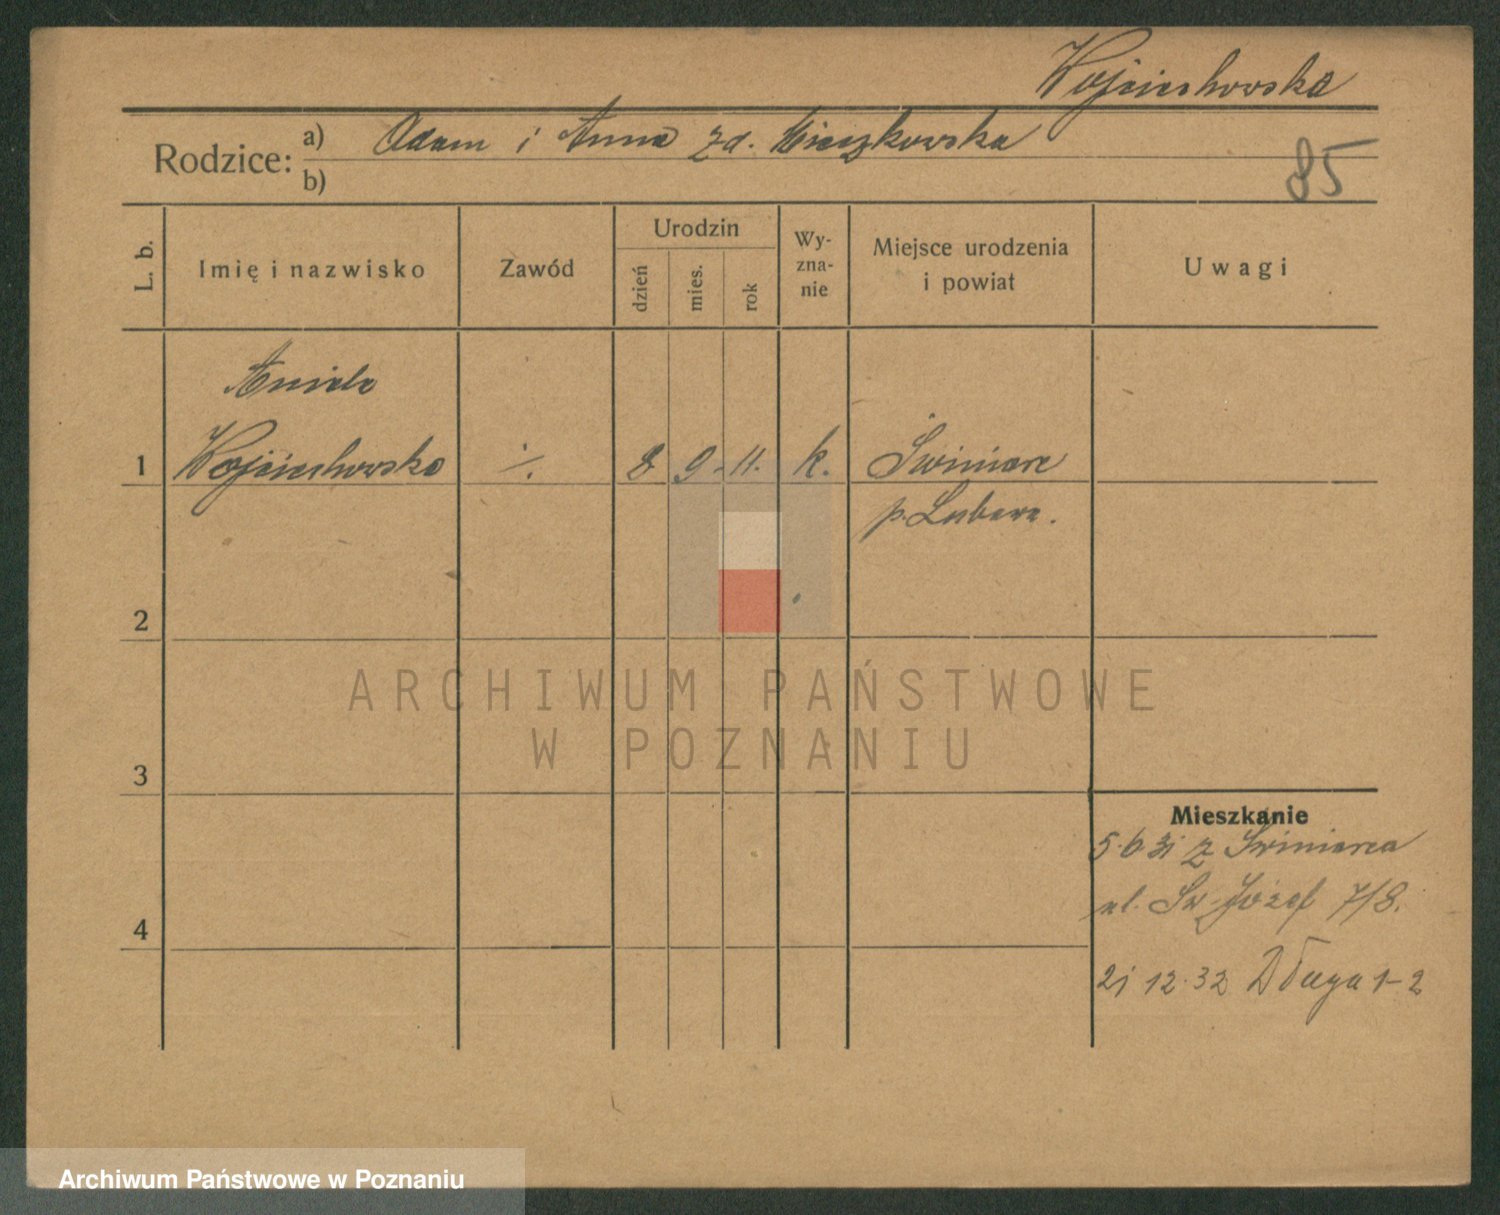 Wojciechowska
Rodzice: a) Adam i Anna zd. Mieczkowska
b)
85
L. b.
Imię i nazwisko
Zawód
Urodzin
dzień
mies.
rok
Wy-
zna-
nie
Miejsce urodzenia
i powiat
Uwagi
Aniela
1 Wojciechowska ·/. 8 9. 11. k. Świniarc
p. Lubawa.
2
ARCHIWUM PAŃSTWOWE
W POZNANIU
3
Mieszkanie
5.6 31 z Świniarca
ul. Św. Józef 7/8.
4
21 12.32 Długa 1-2
Archiwum Państwowe w Poznaniu